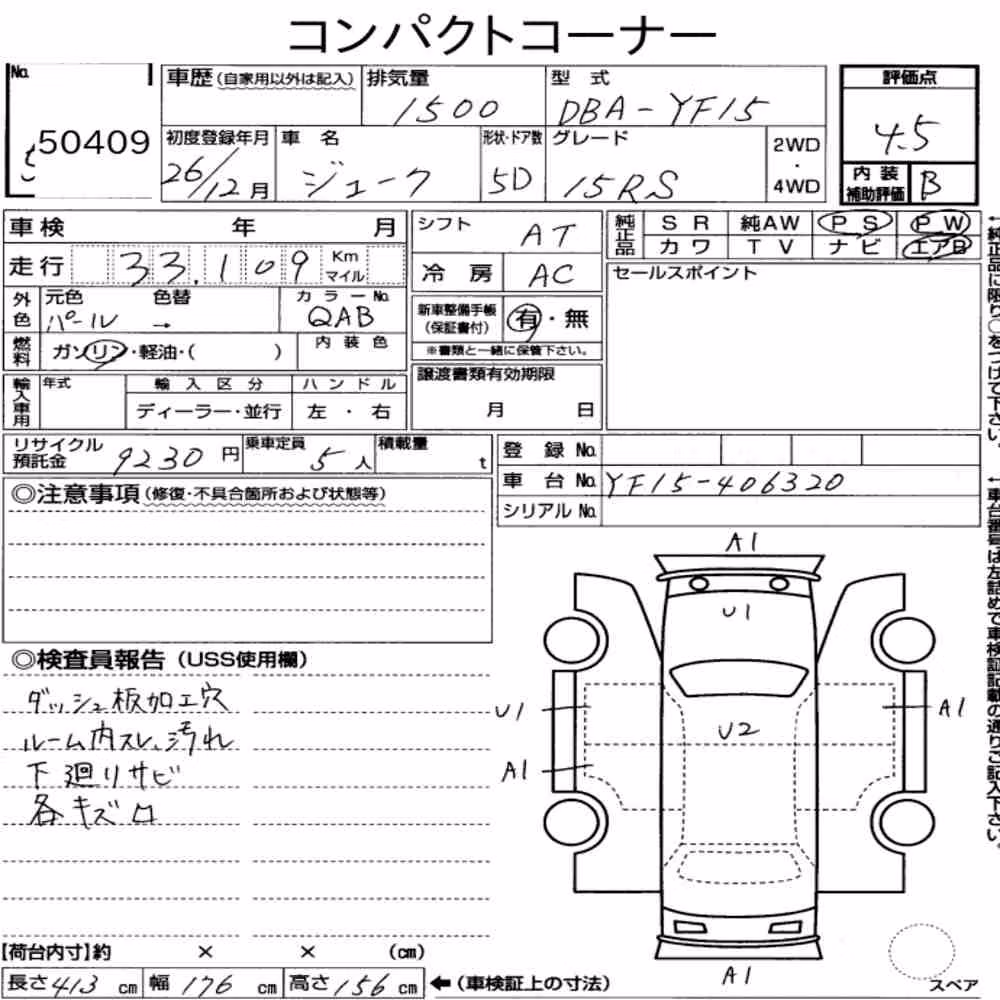 コンパクトコーナー
No. 50409
車歴(自家用以外は記入) 排気量 1500 型式 DBA-YF15
初度登録年月 26/12月 車名 ジューク 形状・ドア数 5D グレード 15RS 2WD・4WD
評価点 4.5
内装補助評価 B
車検 年 月
走行 33,109 Km マイル
外色 元色 パール 色替 → カラーNo. QAB
燃料 ガソリン・軽油・( ) 内装色
輸入車用 年式 輸入区分 ハンドル
ディーラー・並行 左・右
シフト AT
冷房 AC
新車整備手帳(保証書付) 有・無
※書類と一緒に保管下さい。
譲渡書類有効期限
月 日
純正品 SR 純AW PS PW
カワ TV ナビ エアB
セールスポイント
リサイクル預託金 9230円 乗車定員 5人 積載量 t
登録No.
車台No. YF15-406320
シリアルNo.
◎注意事項(修復・不具合箇所および状態等)
◎検査員報告(USS使用欄)
ダッシュ板加工穴
ルーム内スレ、汚れ
下廻りサビ
各キズロ
A1
U1
U1
U2
A1
A1
A1
スペア
【荷台内寸】約 × × (cm)
長さ413cm 幅176cm 高さ156cm ←(車検証上の寸法)
←純正品に限り○をつけて下さい。
←車台番号は左詰めで車検証記載の通りご記入下さい。